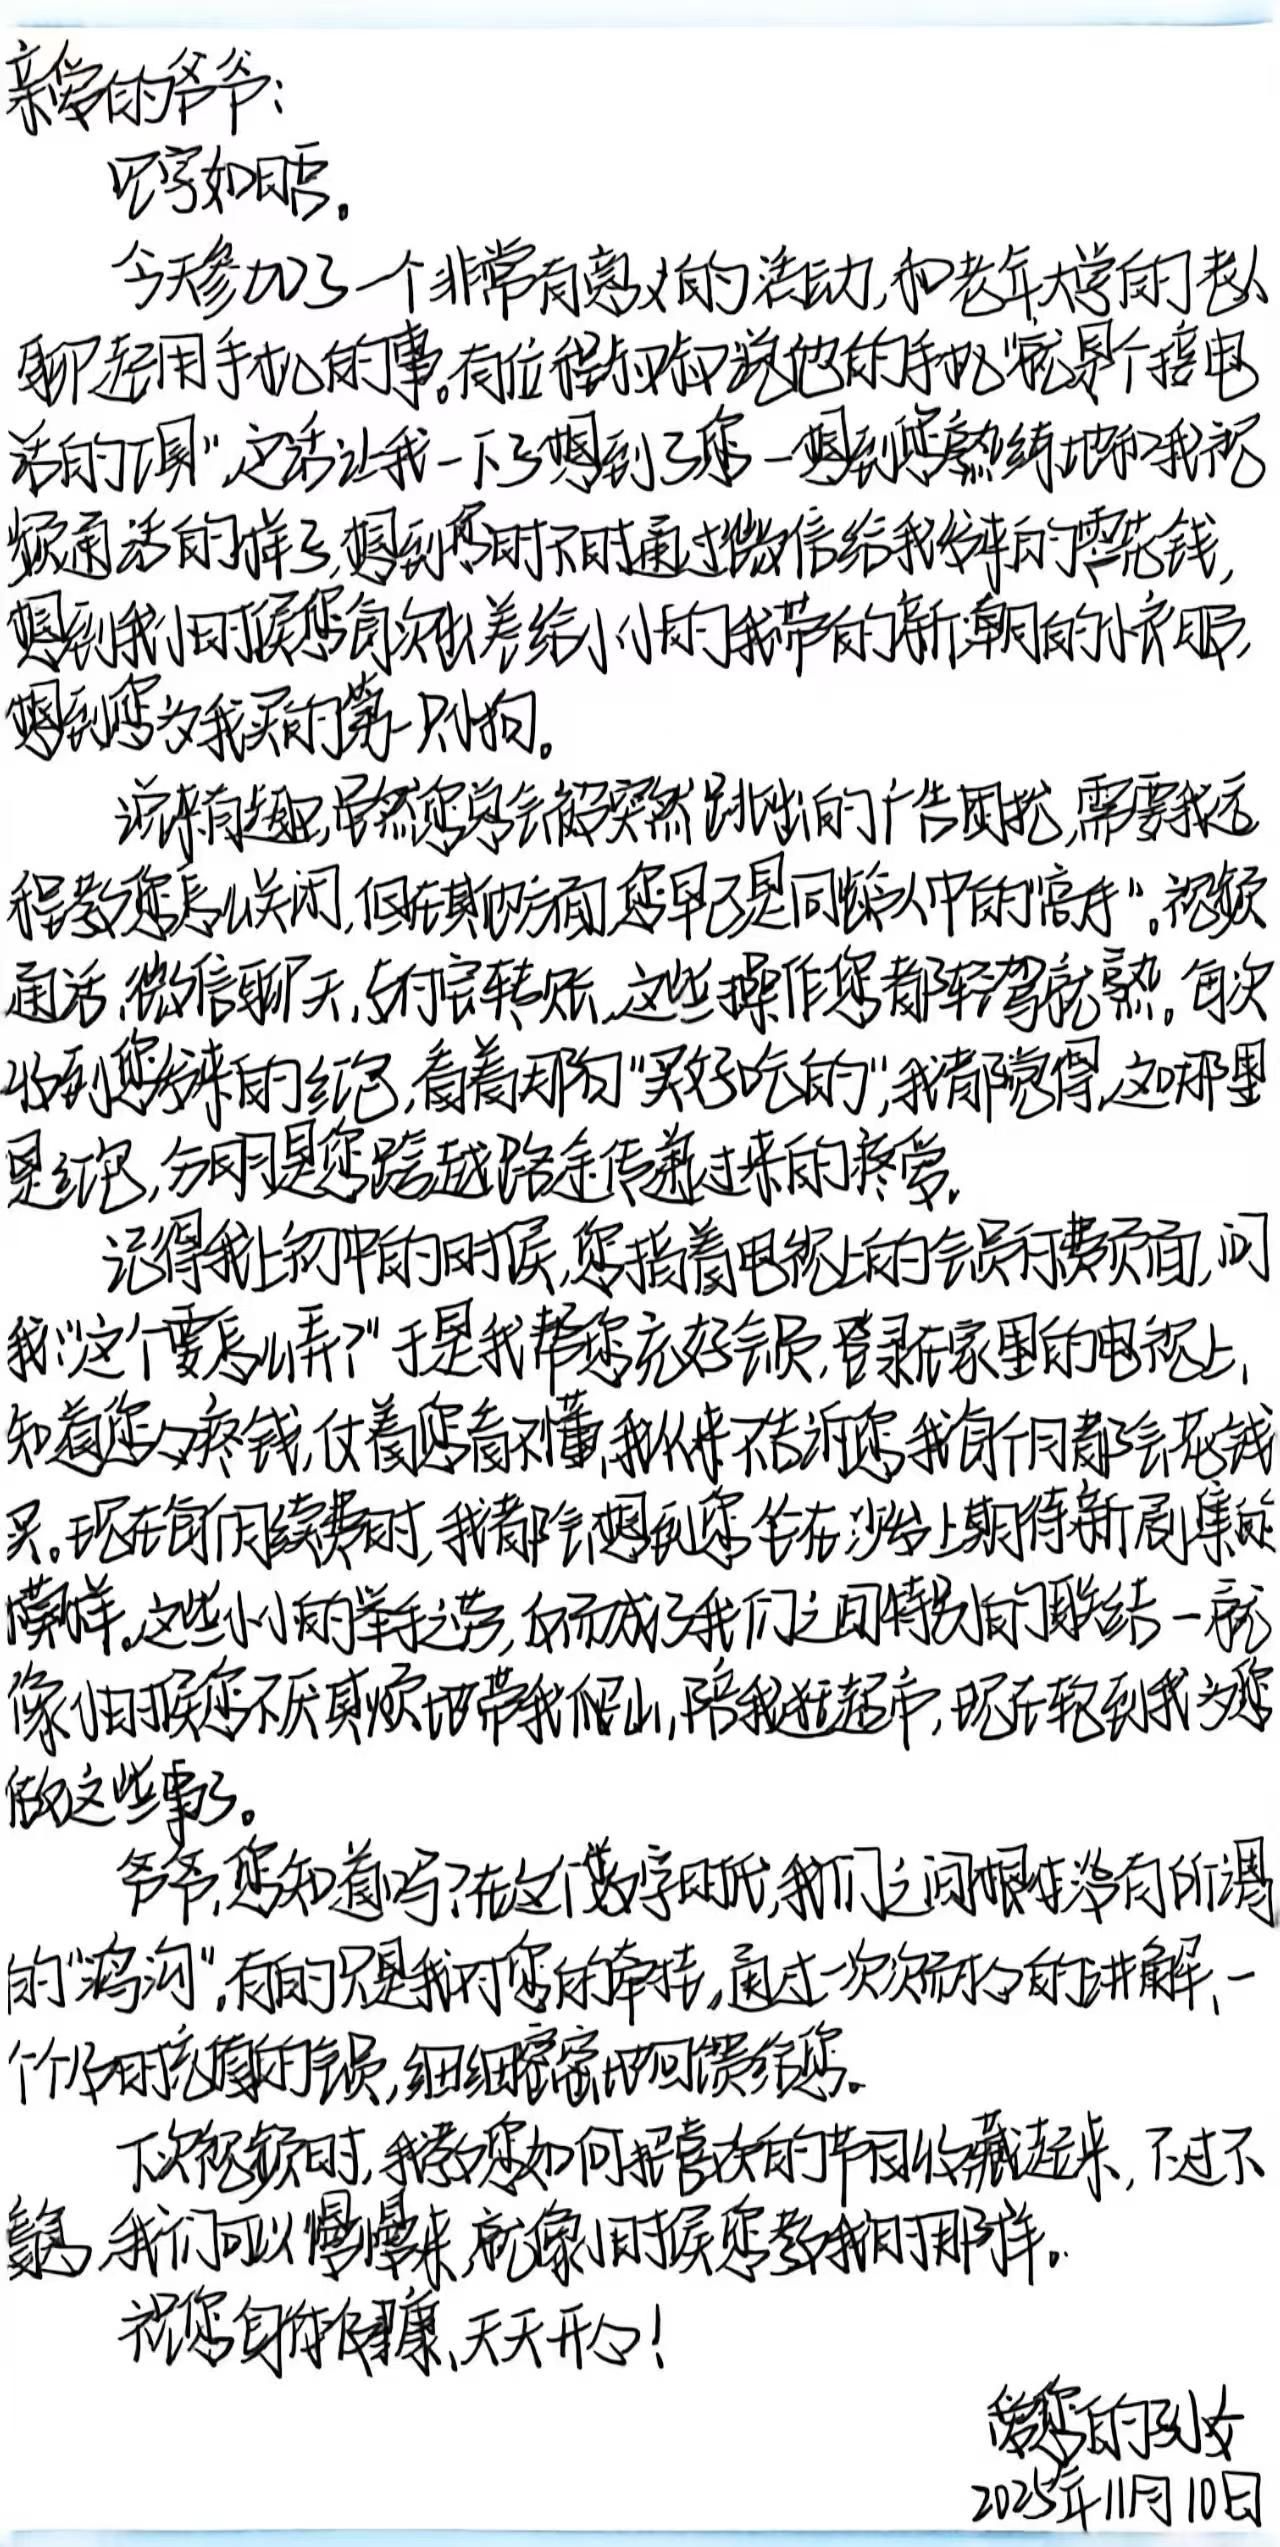 亲爱的爷爷：
见字如晤。
今天参加了一个非常有意义的活动，和老年大学的老人
聊起用手机的事。有位程叔叔说他的手机“就是个接电
话的工具”，这话让我一下子想到了您—想到您熟练地和我视
频通话的样子，想到您时不时通过微信给我发来的零花钱，
想到我小时候您每次出差给小小的我带的新潮的小衣服，
想到您为我买的第一只小狗。
说来有趣，虽然您总会被突然跳出的广告困扰，需要我远
程教您怎么关闭，但在其他方面您早已是同龄人中的“高手”。视频
通话、微信聊天、支付宝转账，这些操作您都轻驾就熟。每次
收到您发来的红包，看着那句“买好吃的”，我都觉得，这哪里
是红包，分明是您跨越路途传递过来的疼爱。
记得我上初中的时候，您指着电视上的会员付费页面，问
我：“这个要怎么弄？”于是我帮您充好会员，登录在家里的电视上，
知道您心疼钱，仗着您看不懂，我从来不告诉您我每个月都会花钱
买。现在每个月续费时，我都会想到您坐在沙发上期待新剧集的
模样。这些小小的举手之劳，反而成了我们之间特别的联结—就
像小时候您不厌其烦地带我爬山，陪我逛超市，现在轮到我为您
做这些事了。
爷爷，您知道吗？在这个数字时代，我们之间根本没有所谓
的“鸿沟”，有的只是我对您的牵挂，通过一次次耐心的讲解、一
个个及时充值的会员，细细密密地回馈给您。
下次视频时，我教您如何把喜欢的节目收藏起来，不过不
急，我们可以慢慢来，就像小时候您教我时那样。
祝您身体健康、天天开心！
爱您的孙女
2025年11月10日